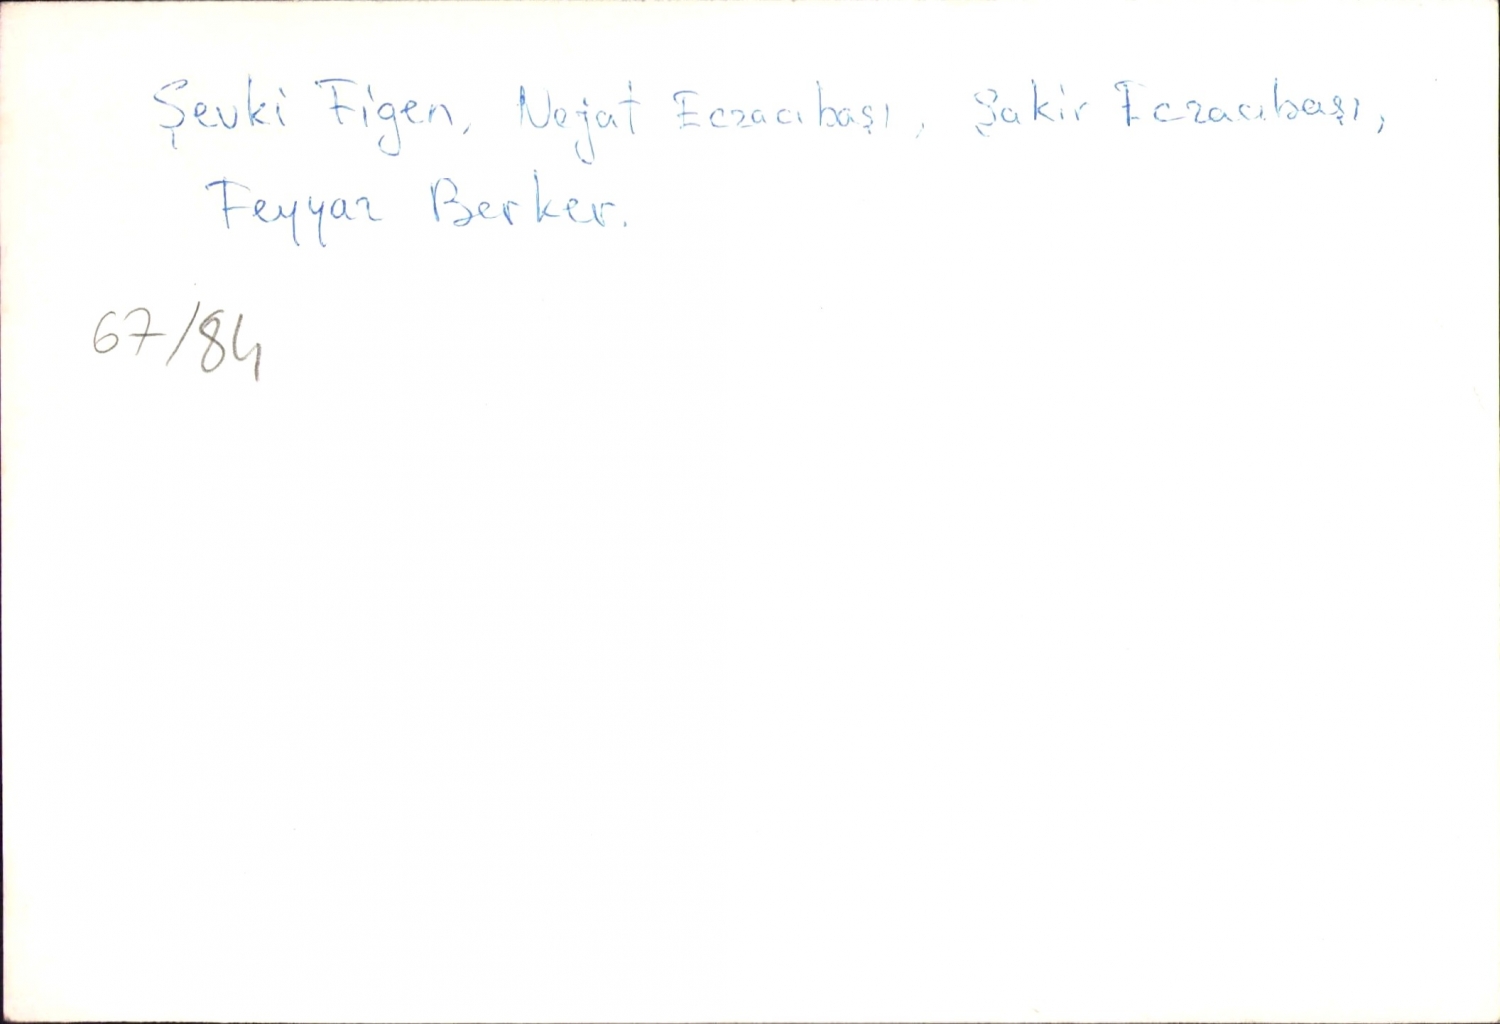 Şevki Figen, Nejat Eczacıbaşı, Şakir Eczacıbaşı,
Feyyaz Berker.
67/84